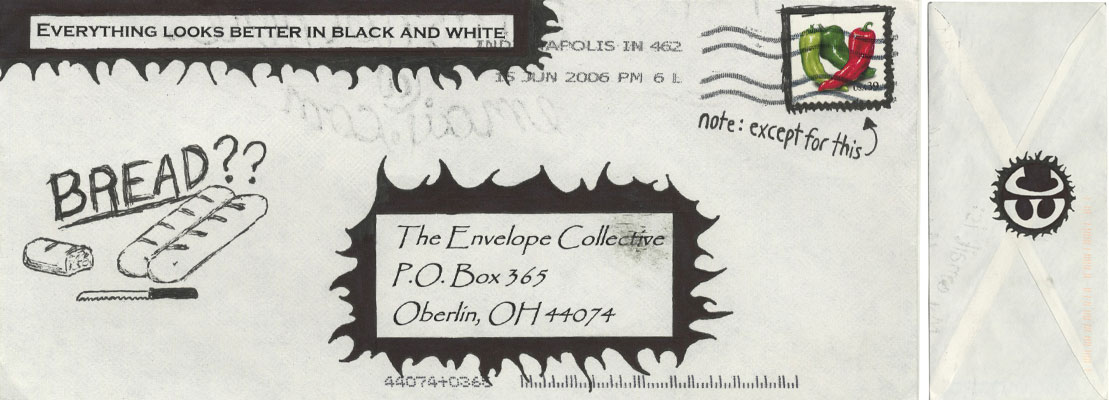 EVERYTHING LOOKS BETTER IN BLACK AND WHITE
INDIANAPOLIS IN 462
15 JUN 2006 PM 6 L
note: except for this
BREAD??
The Envelope Collective
P.O. Box 365
Oberlin, OH 44074
44074+0365